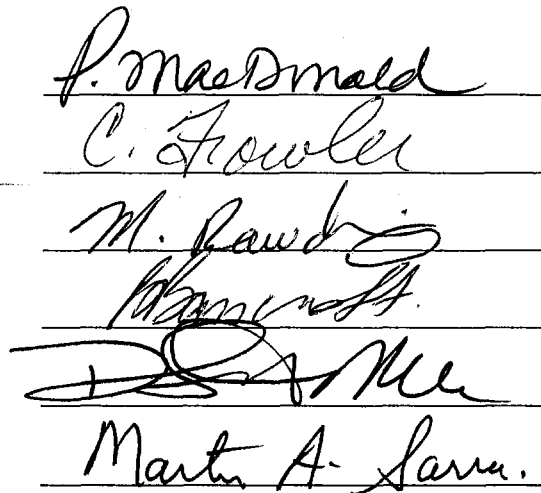 P. MacDonald
C. Fowler
M. Rawding
Bancroft.
Martin A. Sarra.